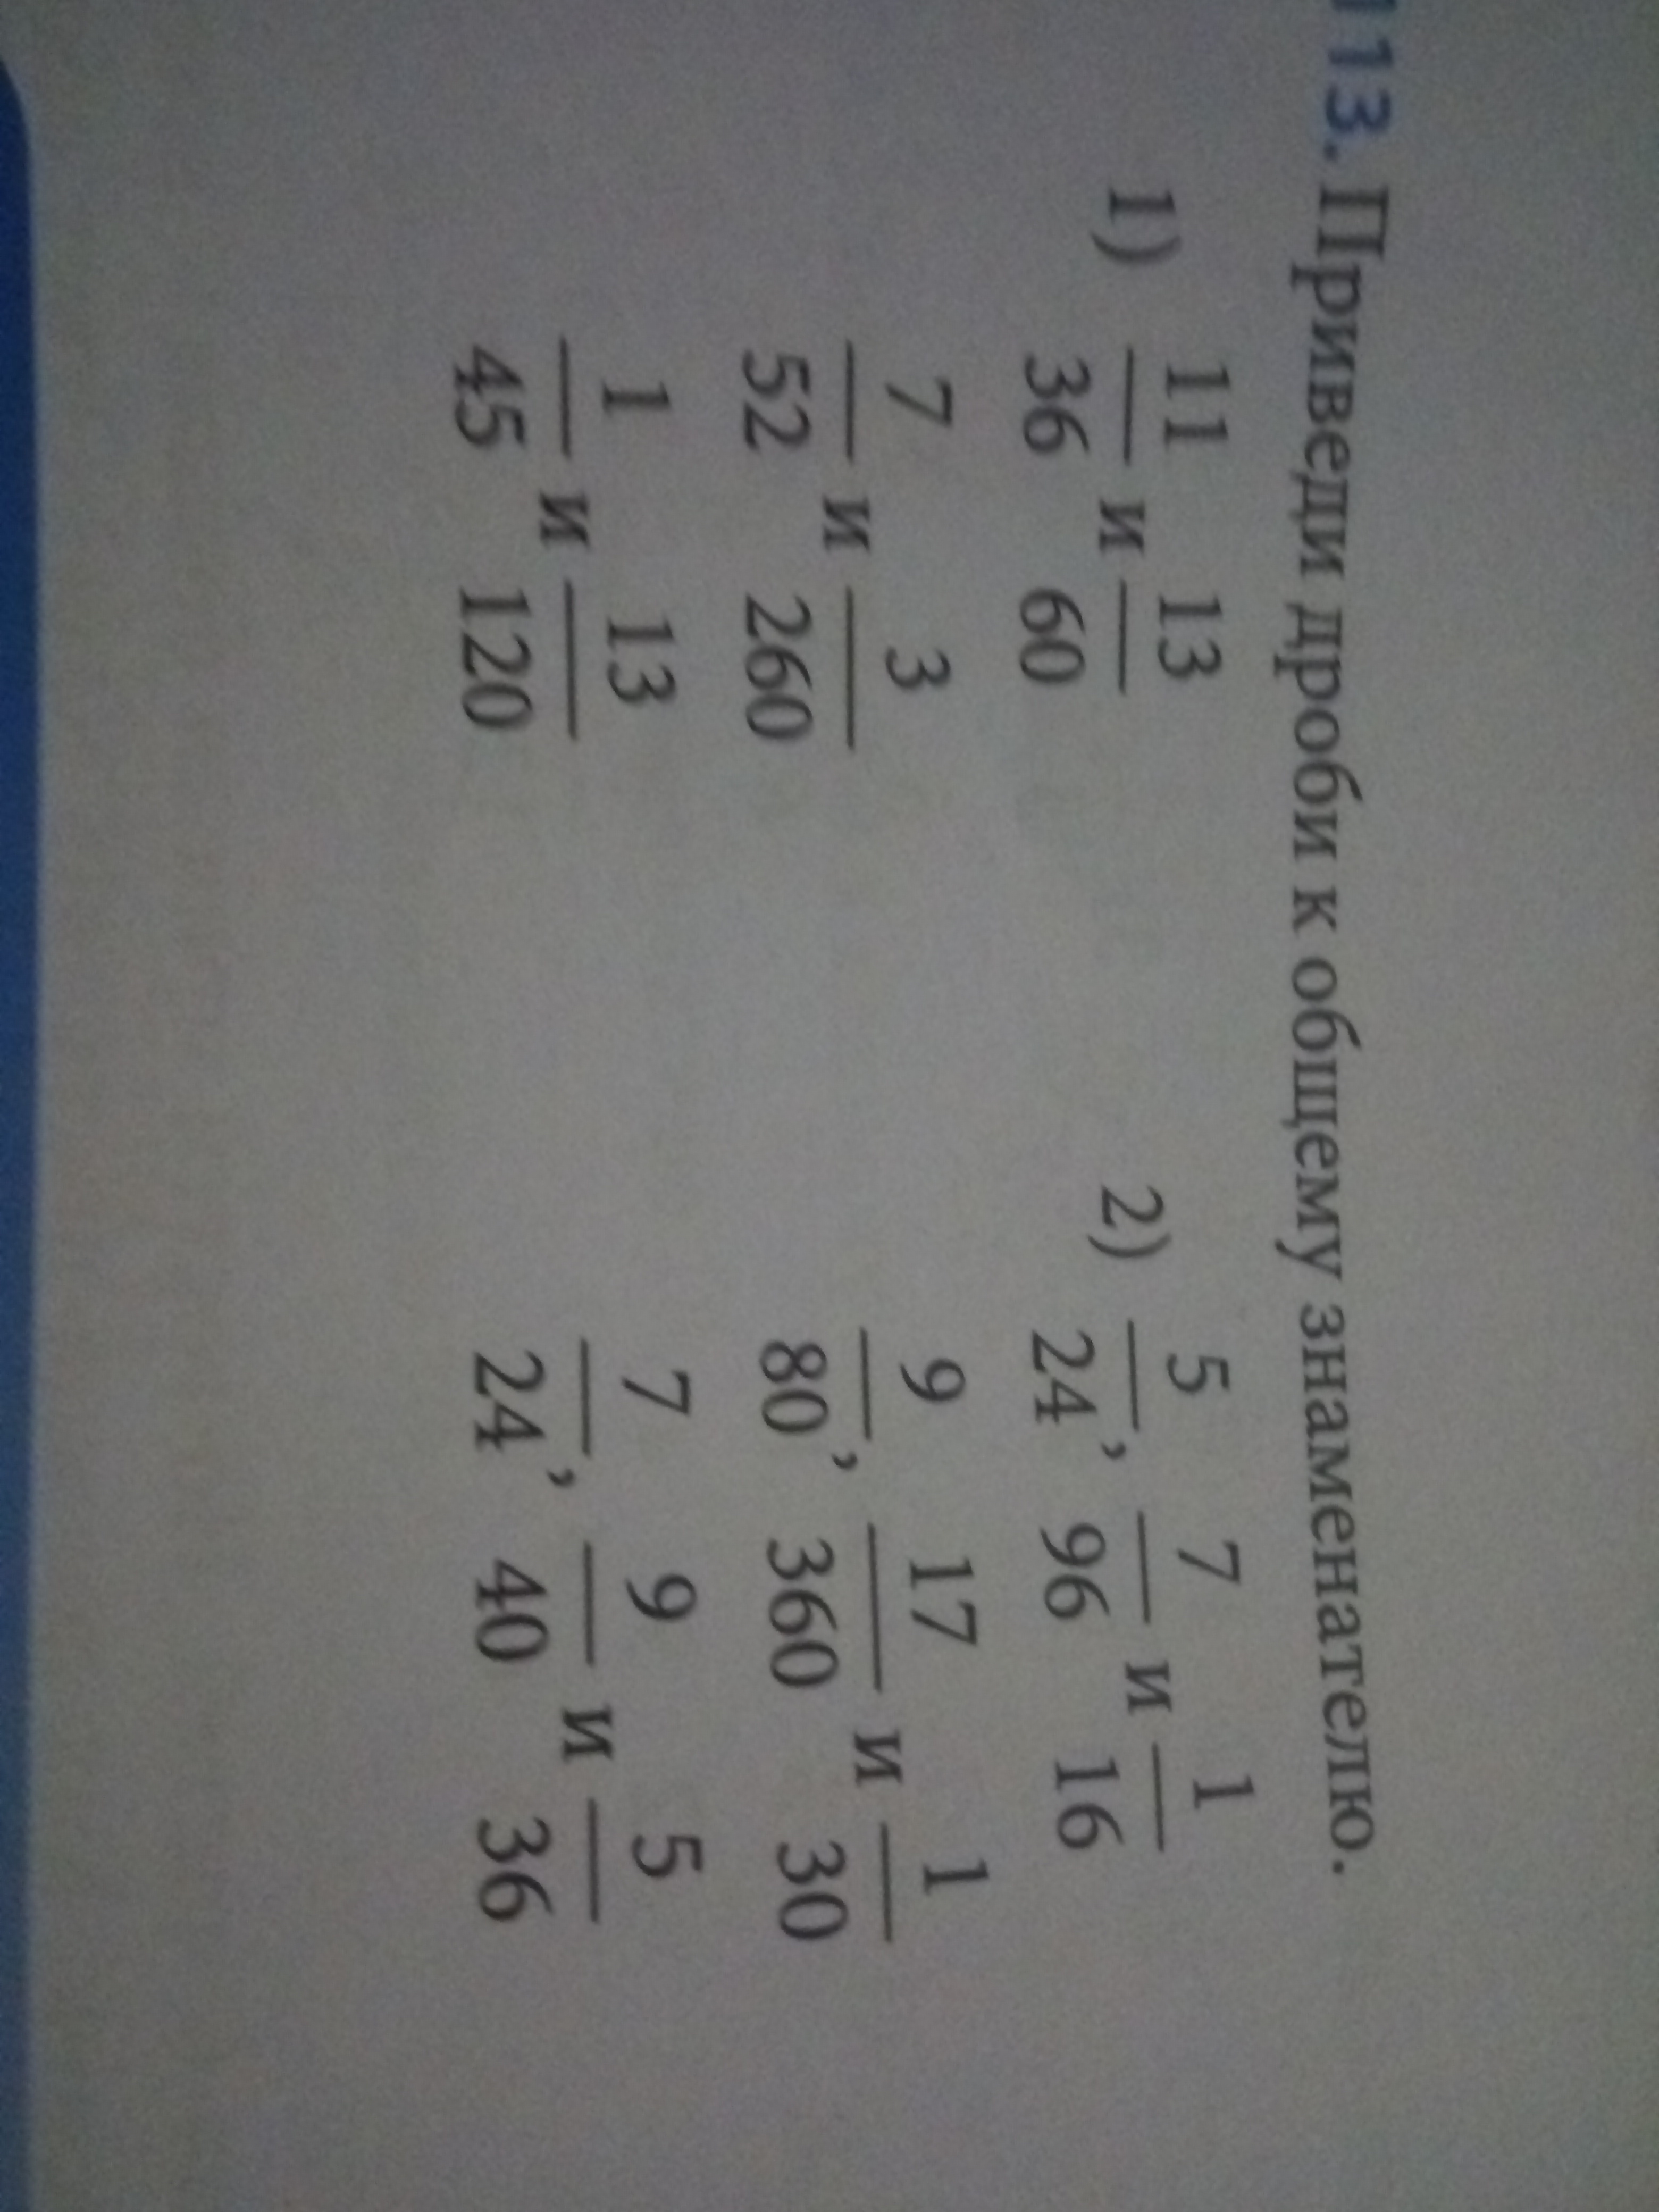 113. Приведи дроби к общему знаменателю.
1) 11/36 и 13/60
7/52 и 3/260
1/45 и 13/120
2) 5/24, 7/96 и 1/16
9/80, 17/360 и 1/30
7/24, 9/40 и 5/36